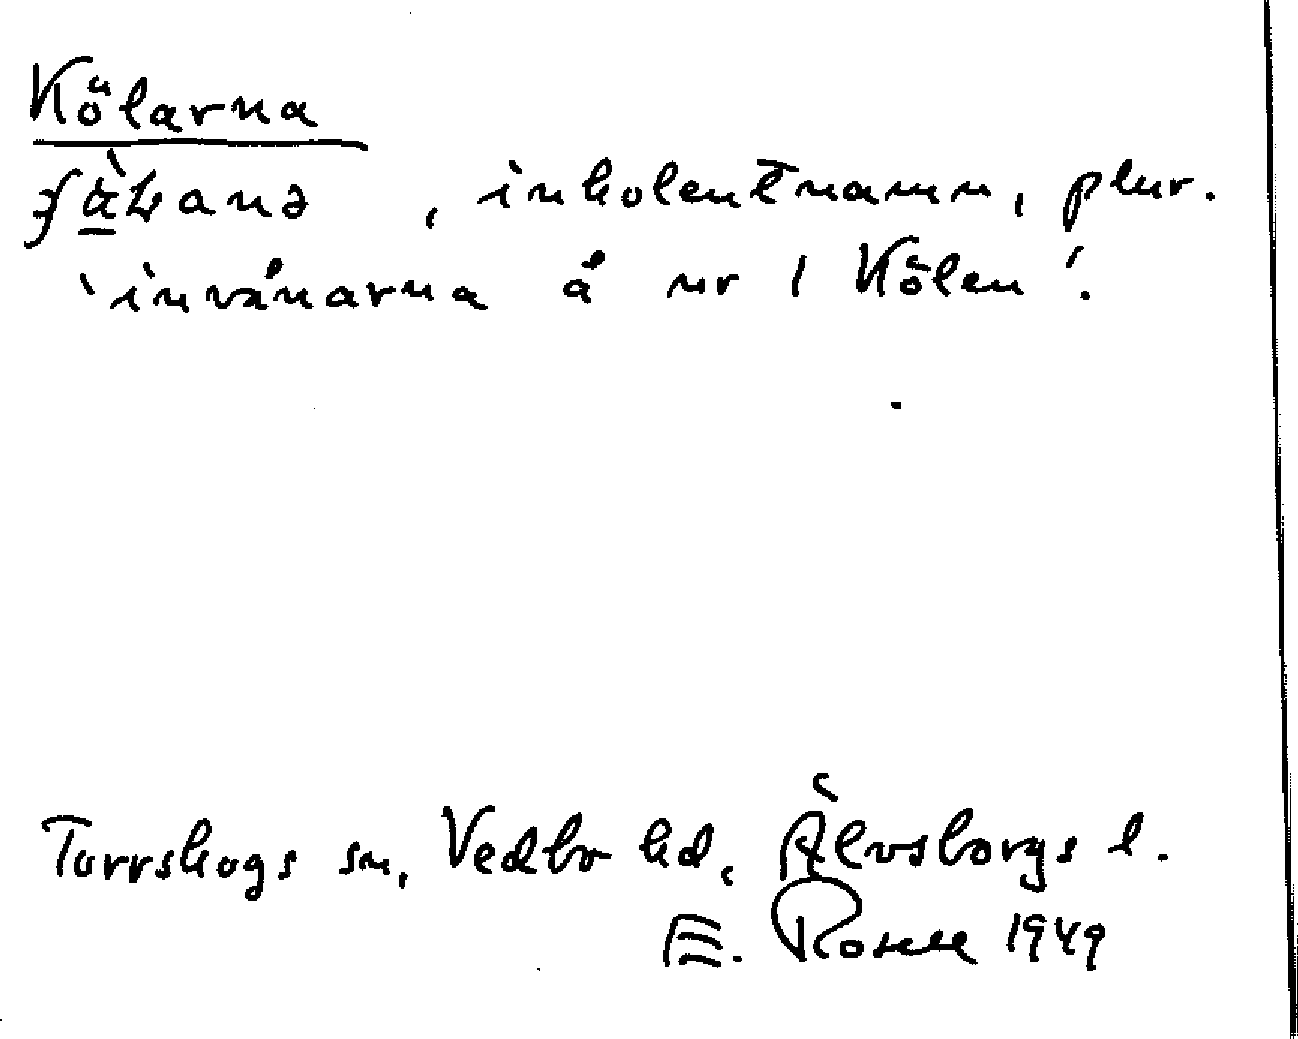 Kölarna
, inbolentnamn, plur.
'invånarna å nr 1 Kölen'.
Torrskogs sn, Vedbo hd, Älvsborgs l.
E. Rosell 1949